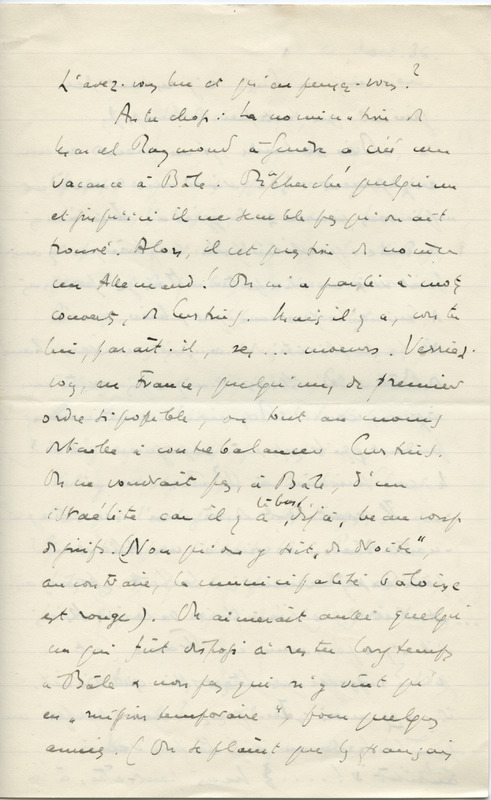 L'avez-vous lu et qu'en pensez-vous ?
Autre chose : La nomination de
Marcel Raymond à Genève a créé une
vacance à Bâle. On cherche quelqu'un
et jusqu'ici il ne semble pas qu'on ait
trouvé. Alors, il est question de nommer
un Allemand ! On m'a parlé à mots
couverts, de Curtius. Mais il y a, contre
lui, paraît-il, ses ... moeurs. Verriez-
vous, en France, quelqu'un, de premier
ordre si possible, ou tout au moins
à contrebalancer Curtius.
On ne voudrait pas, à Bâle, d'un
israélite car il y a là-bas, déjà, beaucoup
de juifs. (Non qu'on y soit "de droite",
au contraire, la municipalité bâloise
est rouge). On aimerait aussi quelqu'
un qui fût disposé à rester longtemps
à Bâle & non pas qui n'y vînt qu'
en "mission temporaire" pour quelques
années. (On se plaint que les français